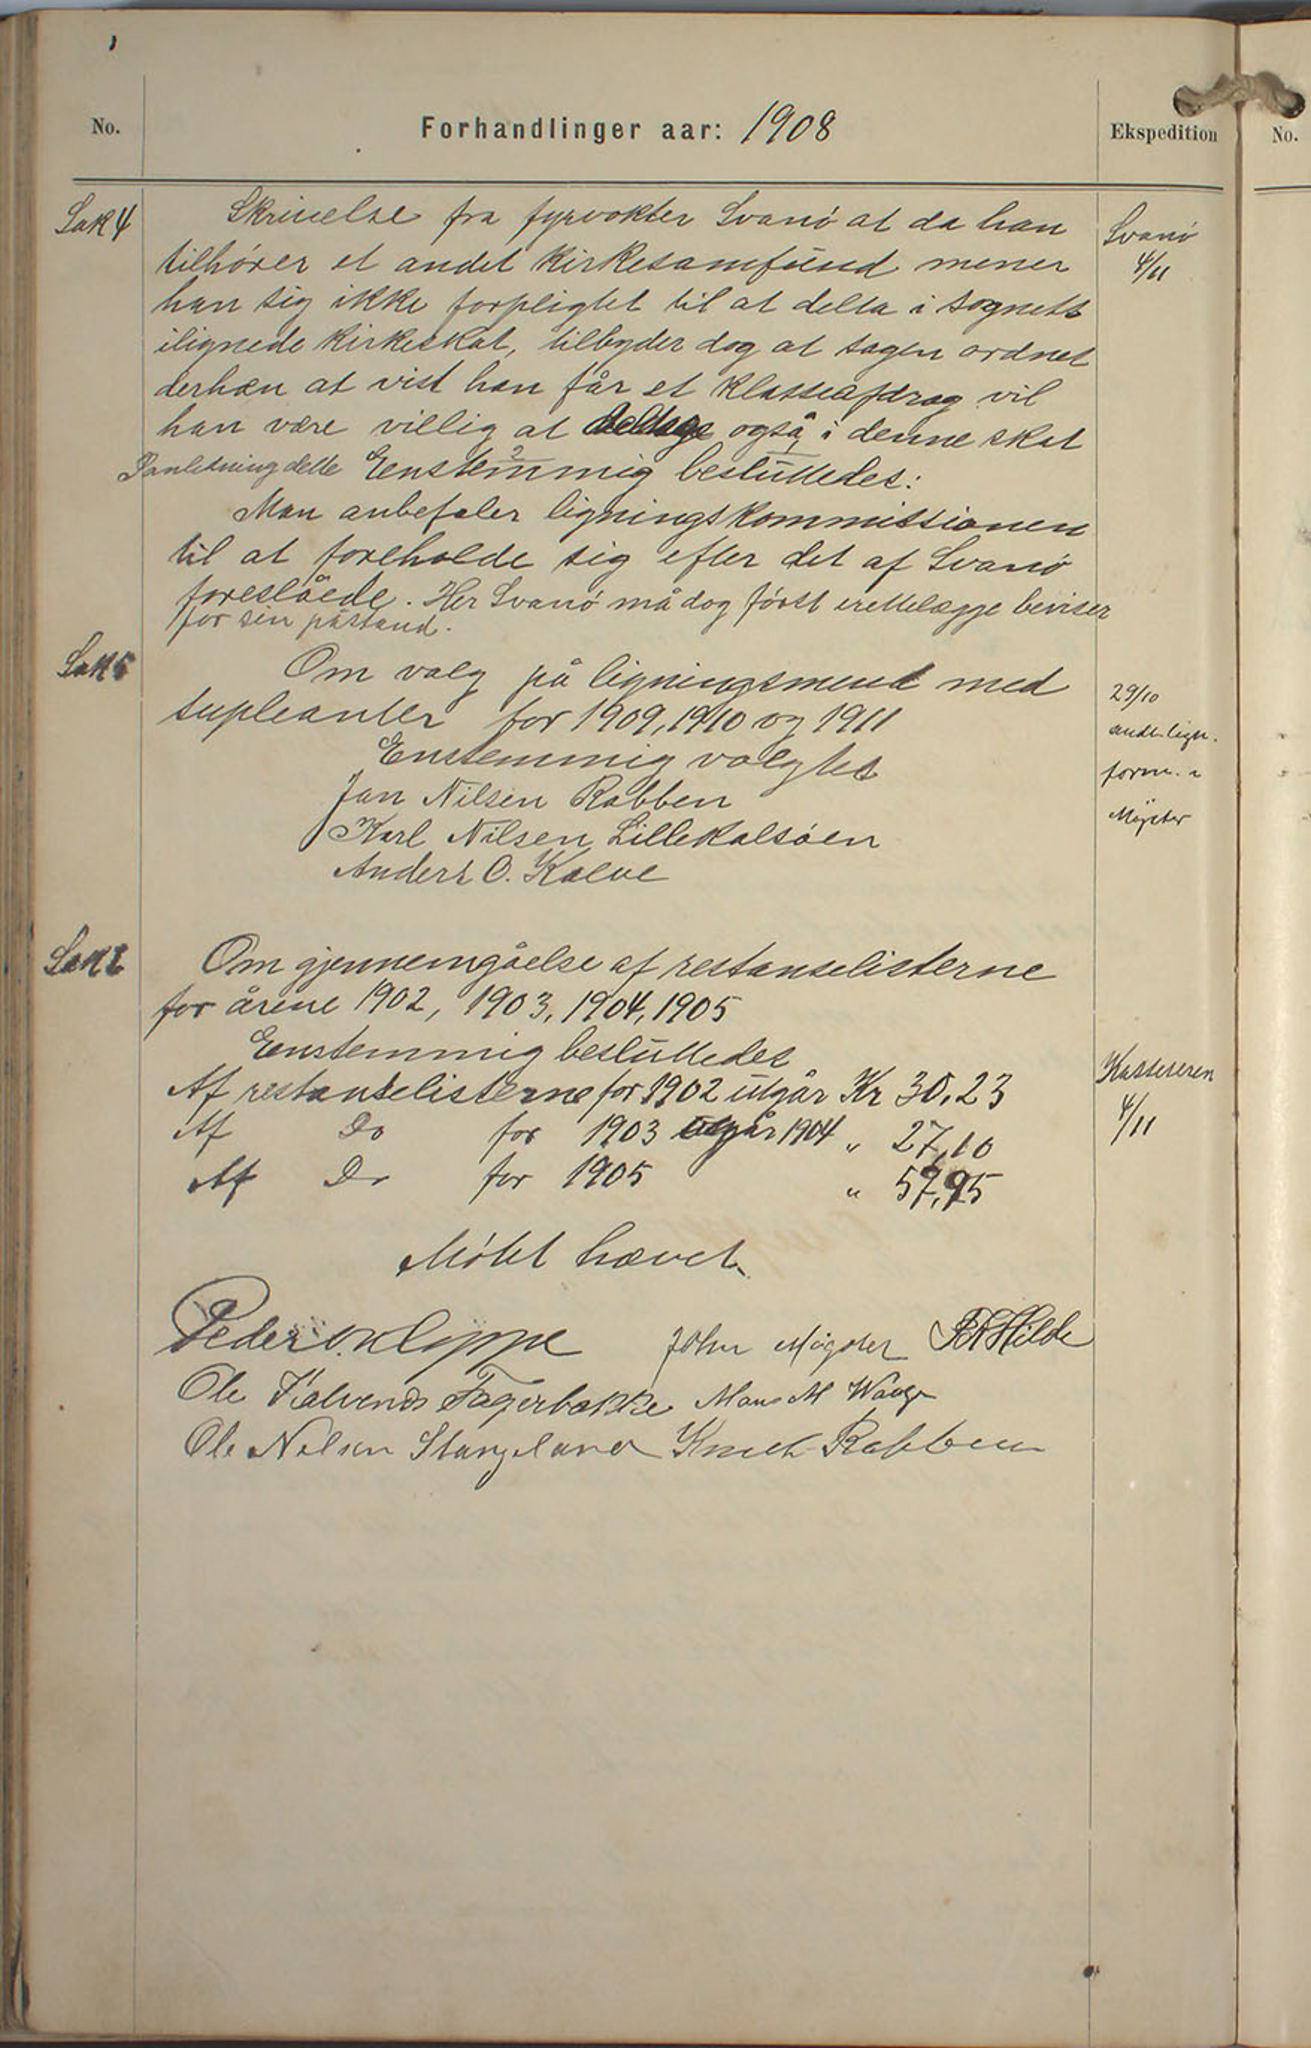 No.
Forhandlinger aar: 1908
Ekspedition
No.
Sak 4
Skrivelse fra fyrvokter Svanö at da han
tilhörer et andet kirkesamfund mener
han sig ikke forpligtet til at delta i sognets
ilignede kirkeskat, tilbyder dog at sagen ordnet
derhæn at vist han får et klasseafdrag vil
han være villig at deltage også i denne skat
I anledning dette Eenstemmig besluttedes:
Man anbefaler ligningskommissionen
til at foreholde sig efter det af Svanö
foreslåede. Her Svanö må dog först irettelægge beviser
for sin påstand.
Svanö
4/11
Sak 5
Om valg på ligningsmend med
supleanter for 1909, 1910 og 1911
Enstemmig valgtes
Jan Nilsen Rabben
Karl Nilsen Lillekalsöen
Anders O. Kalve
29/10
andl. lign.
form.
Mögster
Sak
Om gjennemgåelse af restanselisterne
for årene 1902, 1903, 1904, 1905
Eenstemmig besluttedes
Af restanselisterne for 1902 utgår Kr 30,23
Af Do for 1903 utgår 1904 " 27,10
Af Do for 1905 " 57,95
Kasseseren
4/11
Mötet hævet
Peder O. Kleppe John Mögster Hilde
Ole Kalvenes Fagerbakke Mons M Waage
Ole Nelsen Stangeland Knut Rabben